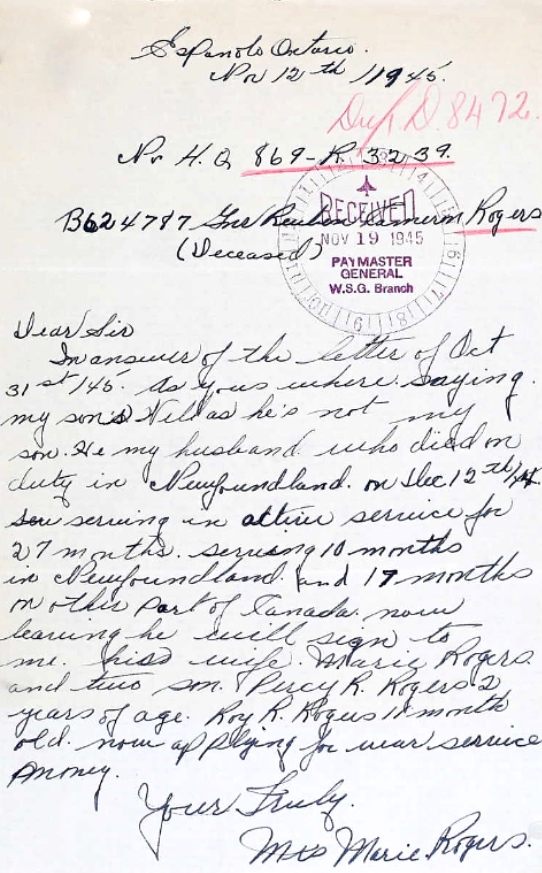 Espanola Ontario.
Nov 12th /1945.
Dup. D. 8472.
No H.Q 869-R-3239.
RECEIVED
NOV 19 1945
PAYMASTER
GENERAL
W.S.G. Branch
B624787 Gnr Reuben Cameron Rogers
(Deceased)
Dear Sir
In answer of the letter of Oct
31st/45. As yous where saying.
my son's Will as he's not my
son. He my husband who died on
duty in Newfoundland. on Dec 12th/44.
serving in active service for
27 months. serving 10 months
in Newfoundland. and 17 months
on other part of Canada. now
leaving he will sign to
me. hiss wife. Marie Rogers.
and two son. Percy R. Rogers 2
years of age. Roy R. Rogers 11 month
old. now applying for war service
money.
Your Truly.
Mrs Marie Rogers.